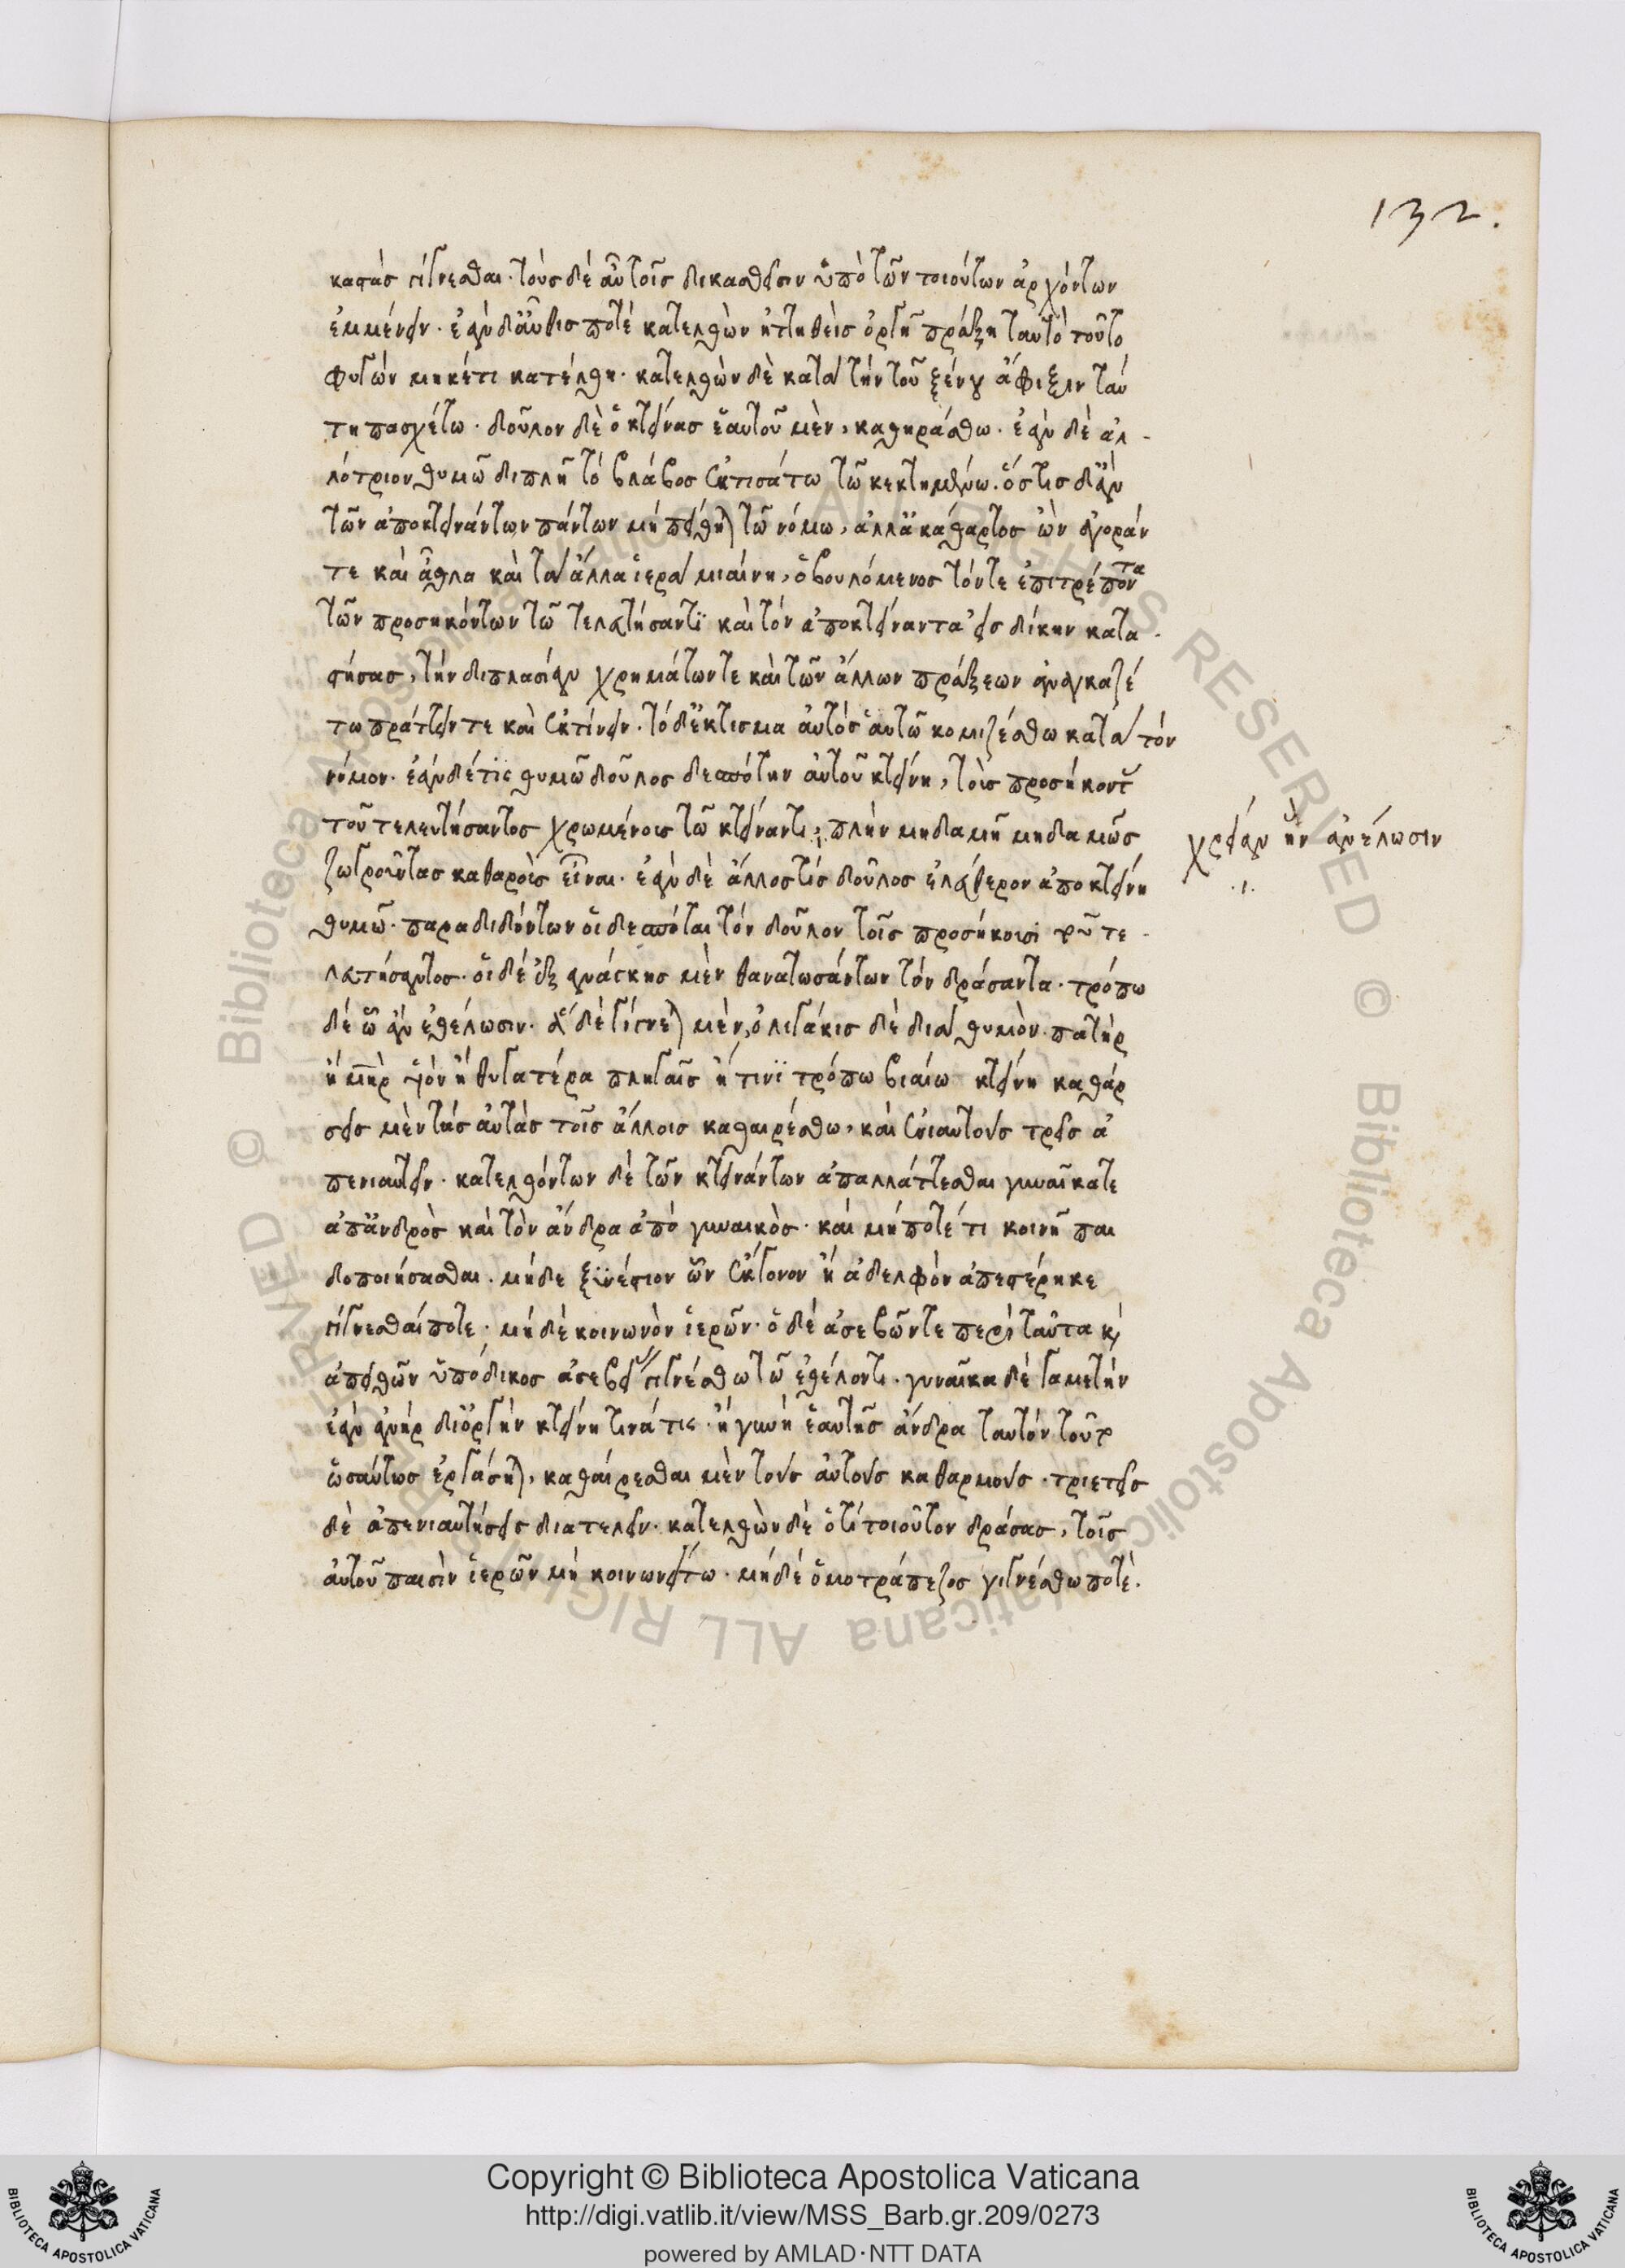 132.
καστὰς γίγνεσθαι· τοὺς δὲ αὖ τοῖς δικασθεῖσιν ὑπὸ τῶν τοιούτων ἀρχόντων
ἐμμένειν· ἐὰν δ' αὖθίς ποτε κατελθὼν ἡττηθεὶς ὀργῇ πράξῃ ταυτὸ τοῦτο
φυγὼν μηκέτι κατέλθῃ· κατελθὼν δὲ κατὰ τὴν τοῦ ξένου ἄφιξιν ταύ
τῃ πασχέτω· δοῦλον δὲ ὁ κτείνας ἑαυτοῦ μὲν, καθηράσθω· ἐὰν δὲ ἀλ-
λότριον θυμῷ διπλῇ τὸ βλάβος ἐκτισάτω τῷ κεκτημένῳ· ὅστις δ' ἂν
τῶν ἀποκτεινάντων πάντων μὴ πείθηται τῷ νόμῳ, ἀλλ' ἀκάθαρτος ὢν ἀγοράν
τε καὶ ἆθλα καὶ τὰ ἄλλα ἱερὰ μιαίνῃ, ὁ βουλόμενος τόν τε ἐπιτρέποντα
τῶν προσηκόντων τῷ τελευτήσαντι καὶ τὸν ἀποκτείναντα εἰς δίκην κατα-
στήσας, τὴν διπλασίαν χρημάτων τε καὶ τῶν ἄλλων πράξεων ἀναγκαζέ
τω πράττειν τε καὶ ἐκτίνειν· τὸ δ' ἔκτισμα αὐτὸς αὑτῷ κομιζέσθω κατὰ τὸν
νόμον· ἐὰν δέ τις θυμῷ δοῦλος δεσπότην αὐτοῦ κτείνῃ, τοῖς προσήκουσι
τοῦ τελευτήσαντος χρωμένοις τῷ κτείναντι, πλὴν μηδαμῇ μηδαμῶς
χρείαν ἣν ἂν ἐθέλωσιν
ζωγροῦντας καθαροῖς εἶναι· ἐὰν δὲ ἄλλος τις δοῦλος ἐλεύθερον ἀποκτείνῃ
θυμῷ· παραδιδόντων οἱ δεσπόται τὸν δοῦλον τοῖς προσήκουσι τοῦ τε-
λευτήσαντος· οἱ δὲ ἐξ ἀνάγκης μὲν θανατωσάντων τὸν δράσαντα· τρόπῳ
δὲ ᾧ ἂν ἐθέλωσιν· ἐὰν δὲ γίγνεται μὲν, ὀλιγάκις δὲ διὰ θυμὸν πατὴρ
ἢ μήτηρ υἱὸν ἢ θυγατέρα πληγαῖς ἤ τινι τρόπῳ βιαίῳ κτείνῃ καθάρ
σεις μὲν τὰς αὐτὰς τοῖς ἄλλοις καθαιρέσθω, καὶ ἐνιαυτοὺς τρεῖς ἀ
πενιαυτεῖν· κατελθόντων δὲ τῶν κτεινάντων ἀπαλλάττεσθαι γυναῖκά τε
ἀπ' ἀνδρὸς καὶ τὸν ἄνδρα ἀπὸ γυναικὸς· καὶ μή ποτέ τι κοινῇ παι
δοποιήσασθαι· μηδὲ ξυνέστιον ὧν ἔκγονον ἢ ἀδελφὸν ἀπεστέρηκε
γίγνεσθαί ποτε· μηδὲ κοινωνὸν ἱερῶν· ὁ δὲ ἀσεβῶν τε περὶ ταῦτα καὶ
ἀπειθῶν ὑπόδικος ἀσεβείας γιγνέσθω τῷ ἐθέλοντι· γυναῖκα δὲ γαμετὴν
ἐὰν ἀνὴρ δι' ὀργὴν κτείνῃ τινά τις· ἢ γυνὴ ἑαυτῆς ἄνδρα ταυτὸν τοῦτο
ὡσαύτως ἐργάσηται, καθαίρεσθαι μὲν τοὺς αὐτοὺς καθαρμοὺς· τριετεῖς
δὲ ἀπενιαυτήσεις διατελεῖν· κατελθὼν δὲ ὅ τι τοιοῦτον δράσας, τοῖς
αὑτοῦ παισὶν ἱερῶν μὴ κοινωνείτω· μηδὲ ὁμοτράπεζος γιγνέσθω ποτέ.
Copyright © Biblioteca Apostolica Vaticana
http://digi.vatlib.it/view/MSS_Barb.gr.209/0273
powered by AMLAD·NTT DATA